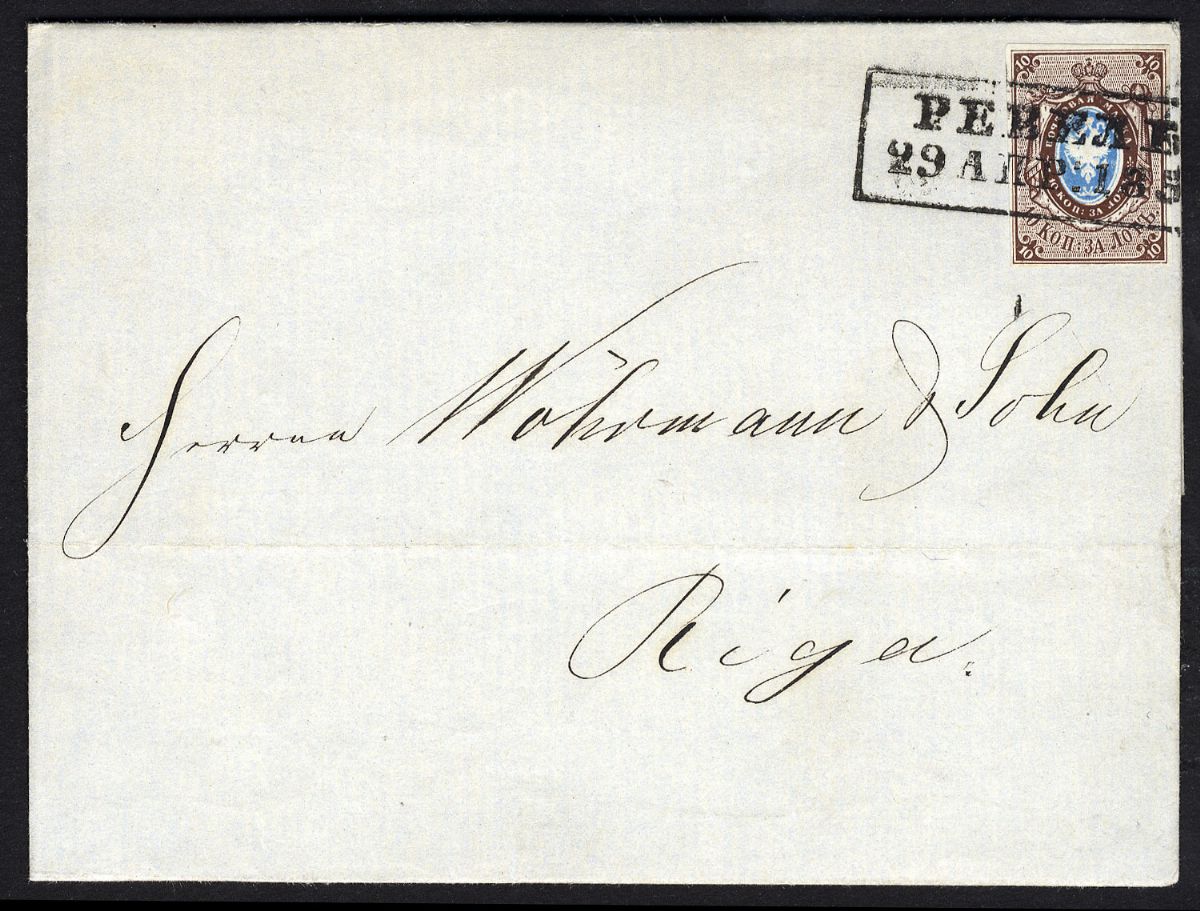 10 10
ПОЧТОВАЯ МАРКА
10 КОП: ЗА ЛОТЪ
10 КОП: ЗА ЛОТЪ
10 10
РЕВЕЛЬ
29 АПР: 185
Herren Wöhrmann & Sohn
Riga.